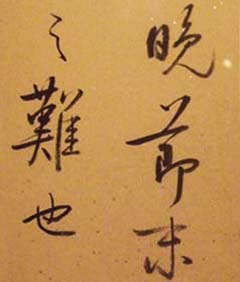 晩節末
之難也